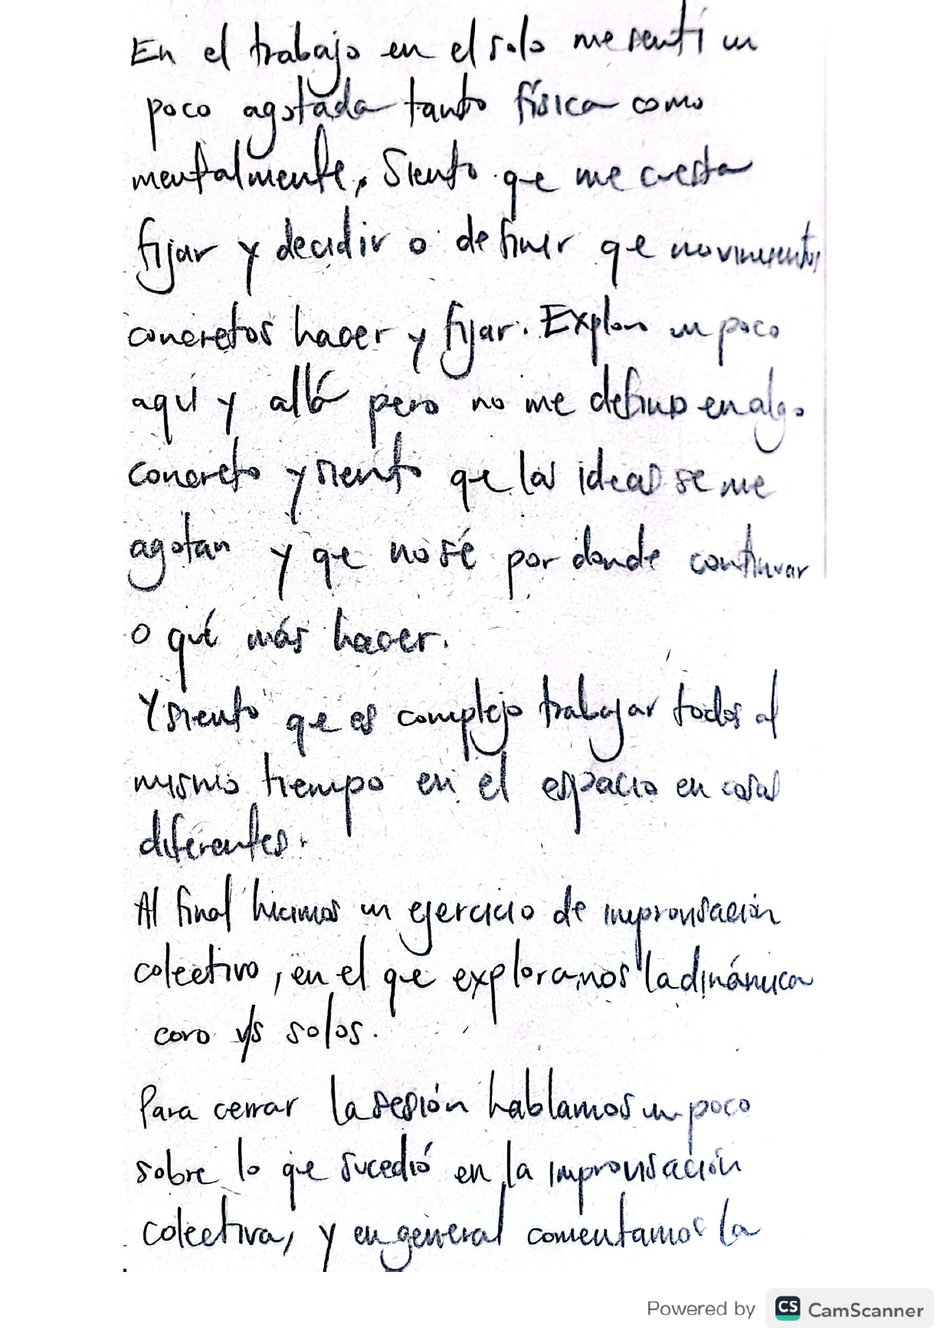 En el trabajo en el solo me sentí un
poco agotada tanto física como
mentalmente, siento que me cuesta
fijar y decidir o definir que movimientos
concretos hacer y fijar. Exploro un poco
aquí y allá pero no me defino en algo
concreto y siento que las ideas se me
agotan y que no sé por donde continuar
o qué más hacer.
Y siento que es complejo trabajar todos al
mismo tiempo en el espacio en cosas
diferentes.
Al final hicimos un ejercicio de improvisación
colectivo, en el que exploramos la dinámica
coro v/s solos.
Para cerrar la sesión hablamos un poco
sobre lo que sucedió en la improvisación
colectiva, y en general comentamos la
Powered by CS CamScanner